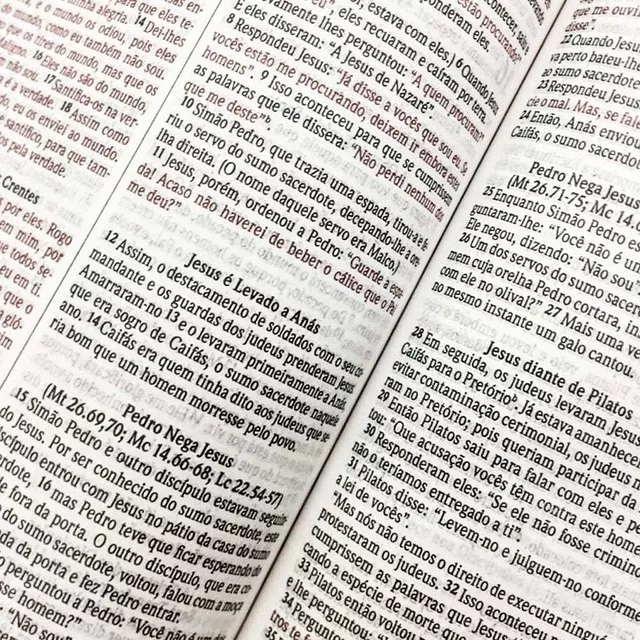 minha alegria. 14 Dei-lhes
e o mundo os odiou, pois eles
mundo, como eu também não sou.
que os tires do mundo, mas que os
Maligno. 16 Eles não são do mundo,
não sou. 17 Santifica-os na ver-
é a verdade. 18 Assim como
eu os enviei ao mundo.
santifico, para que tam-
pela verdade.
Crentes
por eles. Rogo
em mim, por
que todos se-
eu em ti.
que o
estava com eles.) 6 Quando Jesus
eles recuaram e caíram por terra.
lhes perguntou: "A quem procuram?"
E eles disseram: "A Jesus de Nazaré".
8 Respondeu Jesus: "Já disse a vocês que sou eu. Se
vocês estão me procurando, deixem ir embora estes
homens". 9 Isso aconteceu para que se cumprissem
as palavras que ele dissera: "Não perdi nenhum dos
que me deste".
10 Simão Pedro, que trazia uma espada, tirou-a e fe-
riu o servo do sumo sacerdote, decepando-lhe a ore-
lha direita. (O nome daquele servo era Malco.)
11 Jesus, porém, ordenou a Pedro: "Guarde a espa-
da! Acaso não haverei de beber o cálice que o Pai
me deu?"
Jesus é Levado a Anás
12 Assim, o destacamento de soldados com o seu co-
mandante e os guardas dos judeus prenderam Jesus.
Amarraram-no 13 e o levaram primeiramente a Anás,
que era sogro de Caifás, o sumo sacerdote naquele
ano. 14 Caifás era quem tinha dito aos judeus que se-
ria bom que um homem morresse pelo povo.
Pedro Nega Jesus
(Mt 26.69,70; Mc 14.66-68; Lc 22.54-57)
15 Simão Pedro e outro discípulo estavam seguin-
do Jesus. Por ser conhecido do sumo sacerdote, este
discípulo entrou com Jesus no pátio da casa do sumo
sacerdote, 16 mas Pedro teve que ficar esperando do
lado de fora da porta. O outro discípulo, que era co-
do sumo sacerdote, voltou, falou com a moça
da porta e fez Pedro entrar.
perguntou a Pedro: "Você não é um
desse homem?"
"Não sou".
que me ouviram
disse".
22 Quando Jesus
va perto bateu-lhe
ao sumo sacerdote
23 Respondeu Jesus
cie o mal. Mas, se falei
24 Então, Anás enviou
Caifás, o sumo sacerdote
Pedro Nega Jesus
(Mt 26.71-75; Mc 14.
25 Enquanto Simão Pedro
guntaram-lhe: "Você não é um
Ele negou, dizendo: "Não sou"
26 Um dos servos do sumo sacerdote
mem cuja orelha Pedro cortara, in
com ele no olival?" 27 Mais uma vez
no mesmo instante um galo cantou.
Jesus diante de Pilatos
28 Em seguida, os judeus levaram Jesus
Caifás para o Pretório. Já estava amanhecendo
evitar contaminação cerimonial, os judeus
ram no Pretório; pois queriam participar da
29 Então Pilatos saiu para falar com eles e p
tou: "Que acusação vocês têm contra este homem
30 Responderam eles: "Se ele não fosse criminoso
não o teríamos entregado a ti".
31 Pilatos disse: "Levem-no e julguem-no conforme
a lei de vocês".
"Mas nós não temos o direito de executar ninguém
protestaram os judeus. 32 Isso aconteceu
cumprissem as palavras que Jesus
cando a espécie de morte
33 Pilatos então voltou
e lhe perguntou:
34 Perguntou